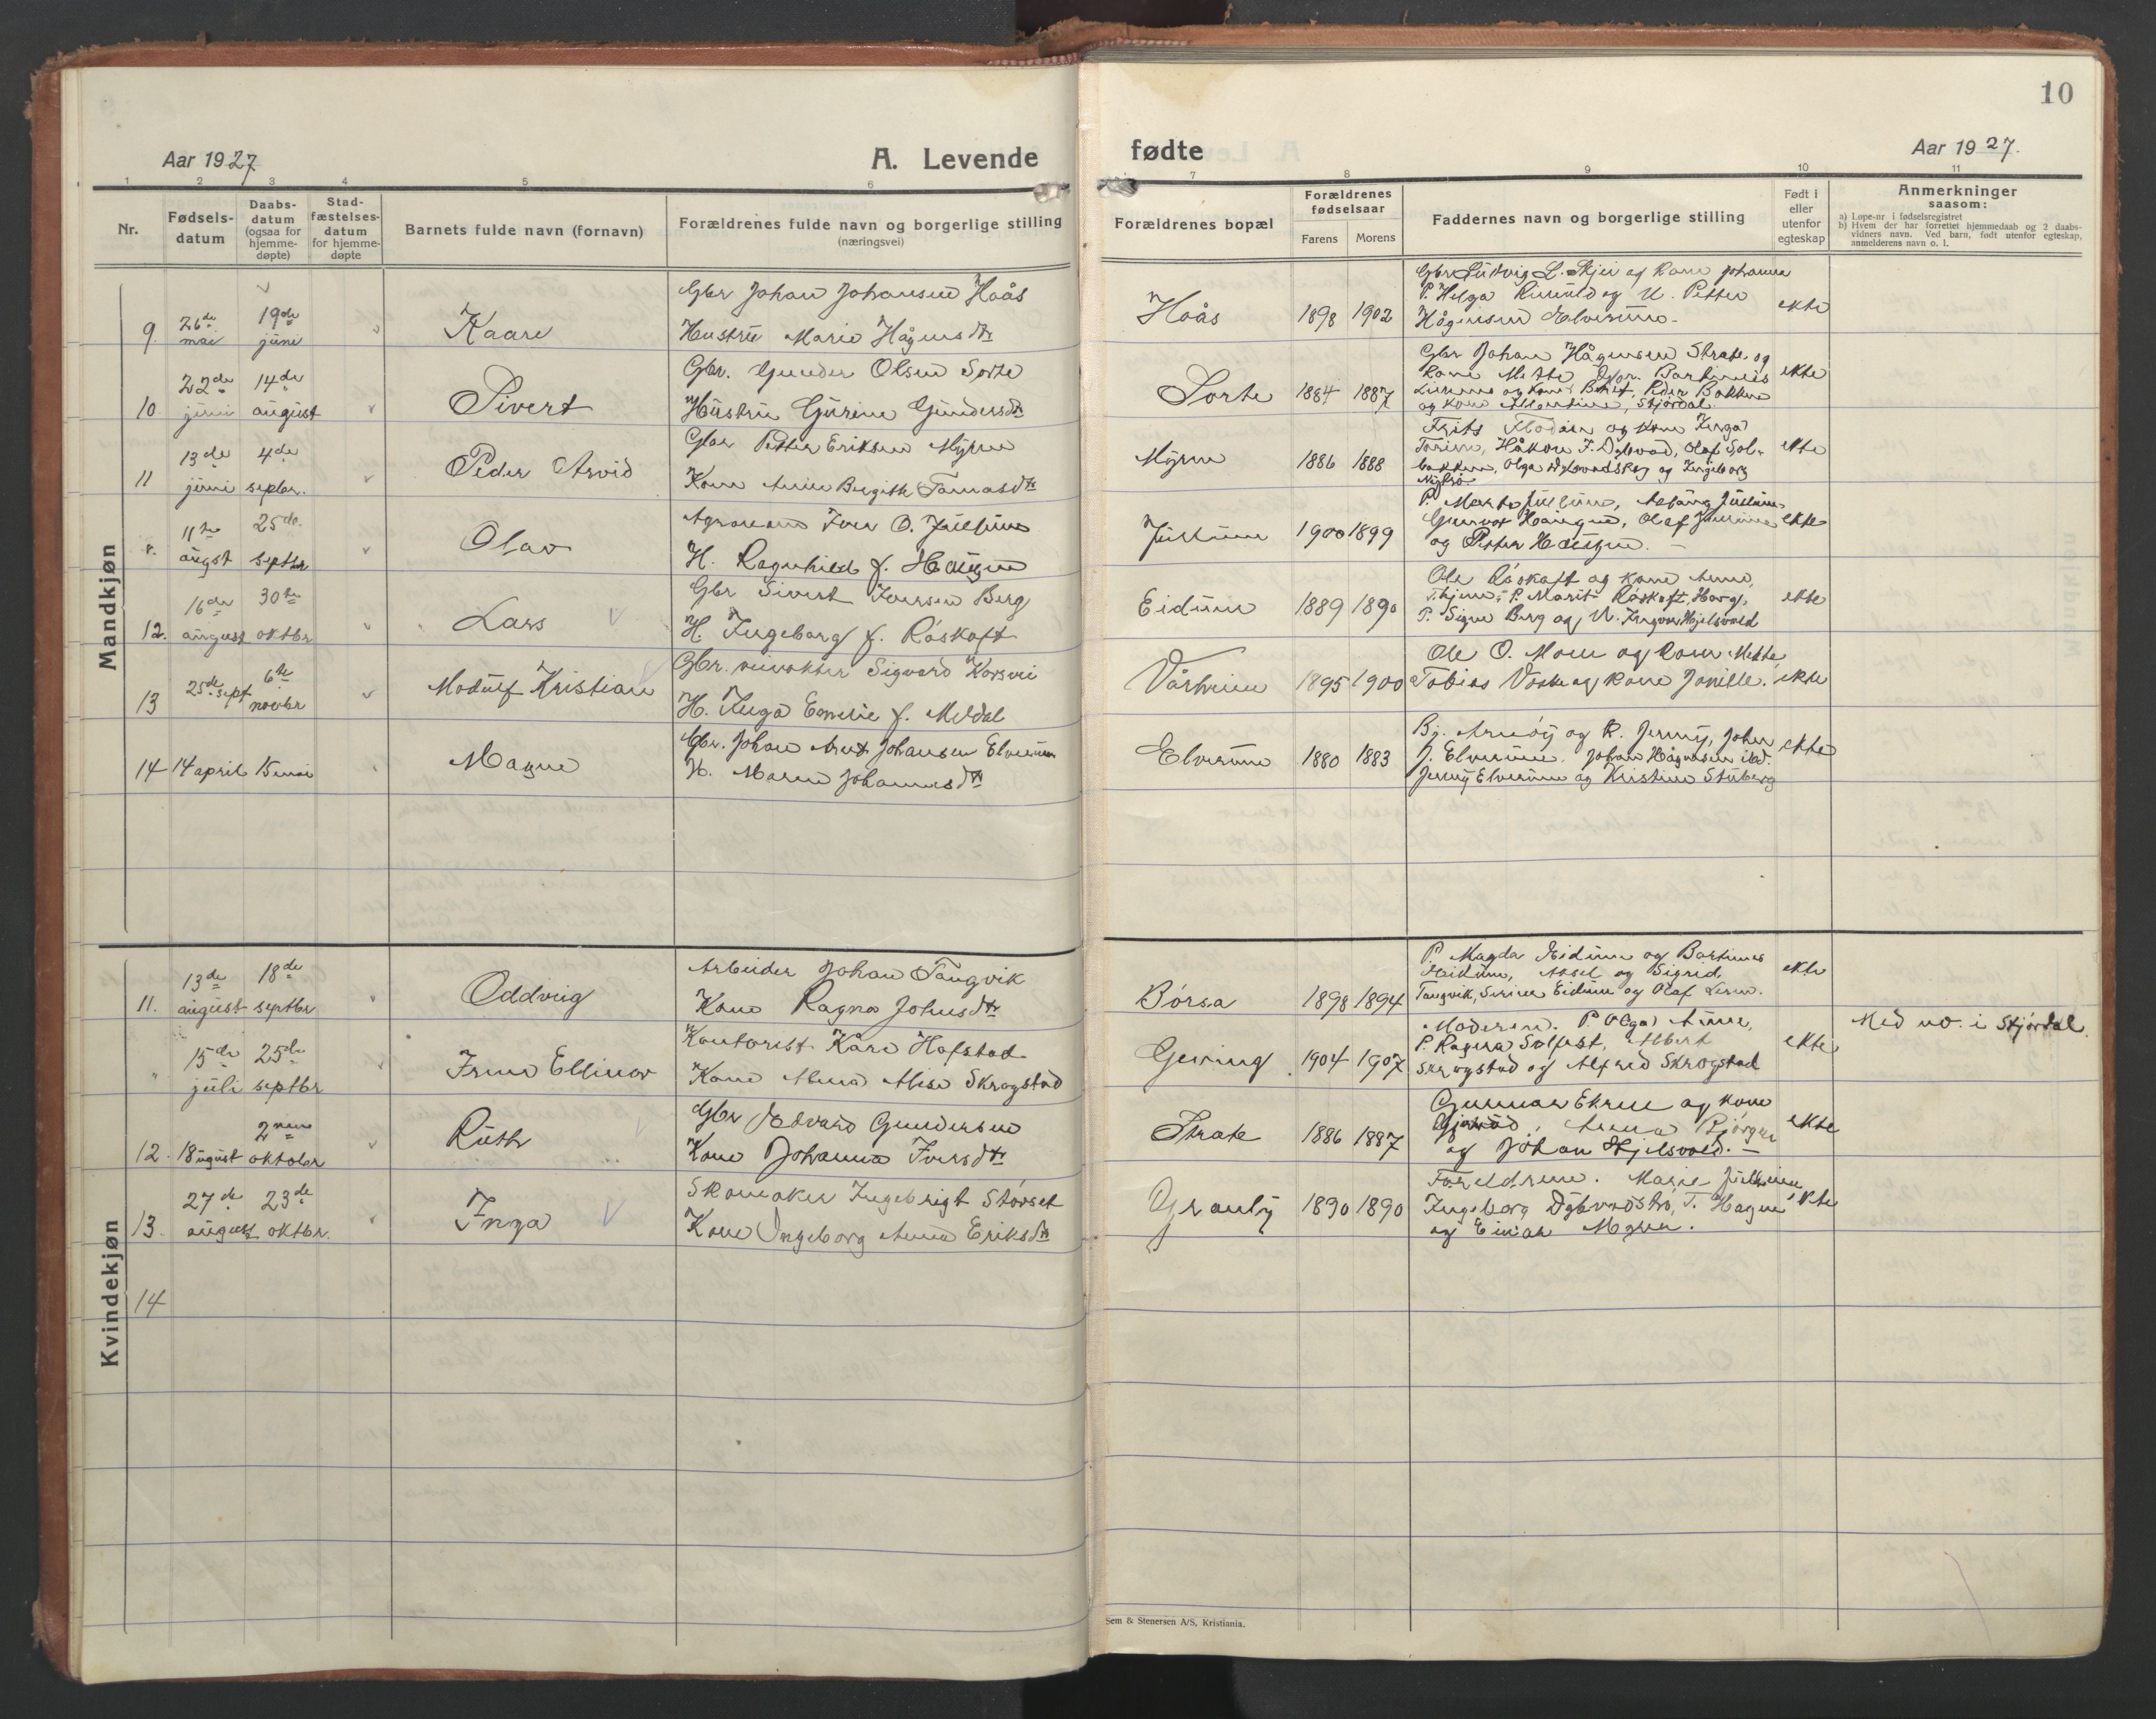 10
Aar 1927
A. Levende
fødte
Aar 1927.
1 2 3 4 5 6
7 8 9 10 11
Nr.
Fødsels-
datum
Daabs-
datum
(ogsaa for
hjemme-
døpte)
Stad-
fæstelses-
datum
for hjemme-
døpte
Barnets fulde navn (fornavn)
Forældrenes fulde navn og borgerlige stilling
(næringsvei)
Forældrenes bopæl
Forældrenes
fødselsaar
Farens
Morens
Faddernes navn og borgerlige stilling
Født i
eller
utenfor
egteskap
Anmerkninger
saasom:
a) Løpe-nr i fødselsregistret
b) Hvem der har forrettet hjemmedaab og 2 daabs-
vidners navn. Ved barn, født utenfor egteskap,
anmelderens navn o. l.
Mandkjøn
9. 26de mai 19de juni
Kaare
Gbr Johan Johansen Haås
Hustru Marie Hågensdtr
Haås 1898 1902
Gbr Ludvig L. Skjei og kone Johanna
P. Helga og U. Petter
Hågensen Elverum.
ekte
10. 22de juni 14de august
Sivert
Gbr. Gunder Olsen Sorte
Hustru Gurine Gundersdtr
Sorte 1884 1887
Gbr Johan Hågensen Strate og
kone Mette Bartinus
og kone Berit, Peder Bakken
og kone Albertine, Stjørdal.
ekte
11 13de juni 4de septbr.
Peder Arvid
Gbr Petter Eriksen Myrne
Kone Anne Bergitte Tomasdtr
Myrne 1886 1888
Frits Flodåen og kone Inga
Håkon F. Dybvad, Olaf Sol-
bakken, Olga og Ingeborg
ekte
11te augst 25de septbr
Olav
Agronom Iver O. Julsum
H. Ragnhild f. Haugen
Julsum 1900 1899
P. Marta Julsum, Aslaug Julsum
Gunvor Haugen, Olaf Julsum
og Petter Haugen.
ekte
12. 16de august 30te oktbr
Lars
Gbr Sivert Iversen Berg
H. Ingeborg f. Røskaft
Eidum 1889 1890
Ole Røskaft og kone Anne,
P. Marit Røskaft, Horg,
P. Signe Berg og U. Ingvar Hjelsvold
ekte
13 25de sept 6te novbr
Modulf Kristian
Gbr. veivokter Sigvard Korsvei
H. Inga Emelie f. Meldal
Vårheim 1895 1900
Ole O. Moen og kone Mette,
Tobias og kone Jonille.
ekte
14 14 april 15 mai
Magne
Gbr. Johan Arnt Johansen Elverum
H. Maren Johannesdtr
Elverum 1880 1883
Bj. Arnøy og K. Jenny, John
J. Elverum. Johan Hågensen ibd.
Jenny Elverum og Kristine Stuberg
ekte
Kvindekjøn
11. 13de august 18de septbr
Oddveig
Arbeider Johan Tangvik
Kone Ragna Johnsdtr
Børsa 1898 1894
P. Magda Eidum og Bartinus
Eidum, Aksel og Sigrid
Tangvik, Eidum og Olaf
ekte
" 15de juli 25de septbr
Irene Ellinor
Kontorist Kåre Hofstad
Kone Alma Alise Skrogstad
Geving 1904 1907
Moderen. P. Olga Anne,
P. Ragna Solfast, Albert
Skrogstad og Alfred Skrogstad
ekte
Med no. i Stjørdal.
12. 18 august 2nen oktober
Ruth
Gbr Edvard Gundersen
Kone Johanna Iversdtr
Strate 1886 1887
Gunnar Ekren og kone
Gjertrud, Anna Bjørgen
og Johan Hjelsvold.
ekte
13. 27de august 23de oktbr.
Inga
Skomaker Ingebrigt Størset
Kone Ingeborg Anna Eriksdtr
Granby 1890 1890
Foreldrene. Marie Julsum
Ingeborg T. Hagen
og Einar Myren.
ekte
14
Sem & Stenersen A/S, Kristiania.